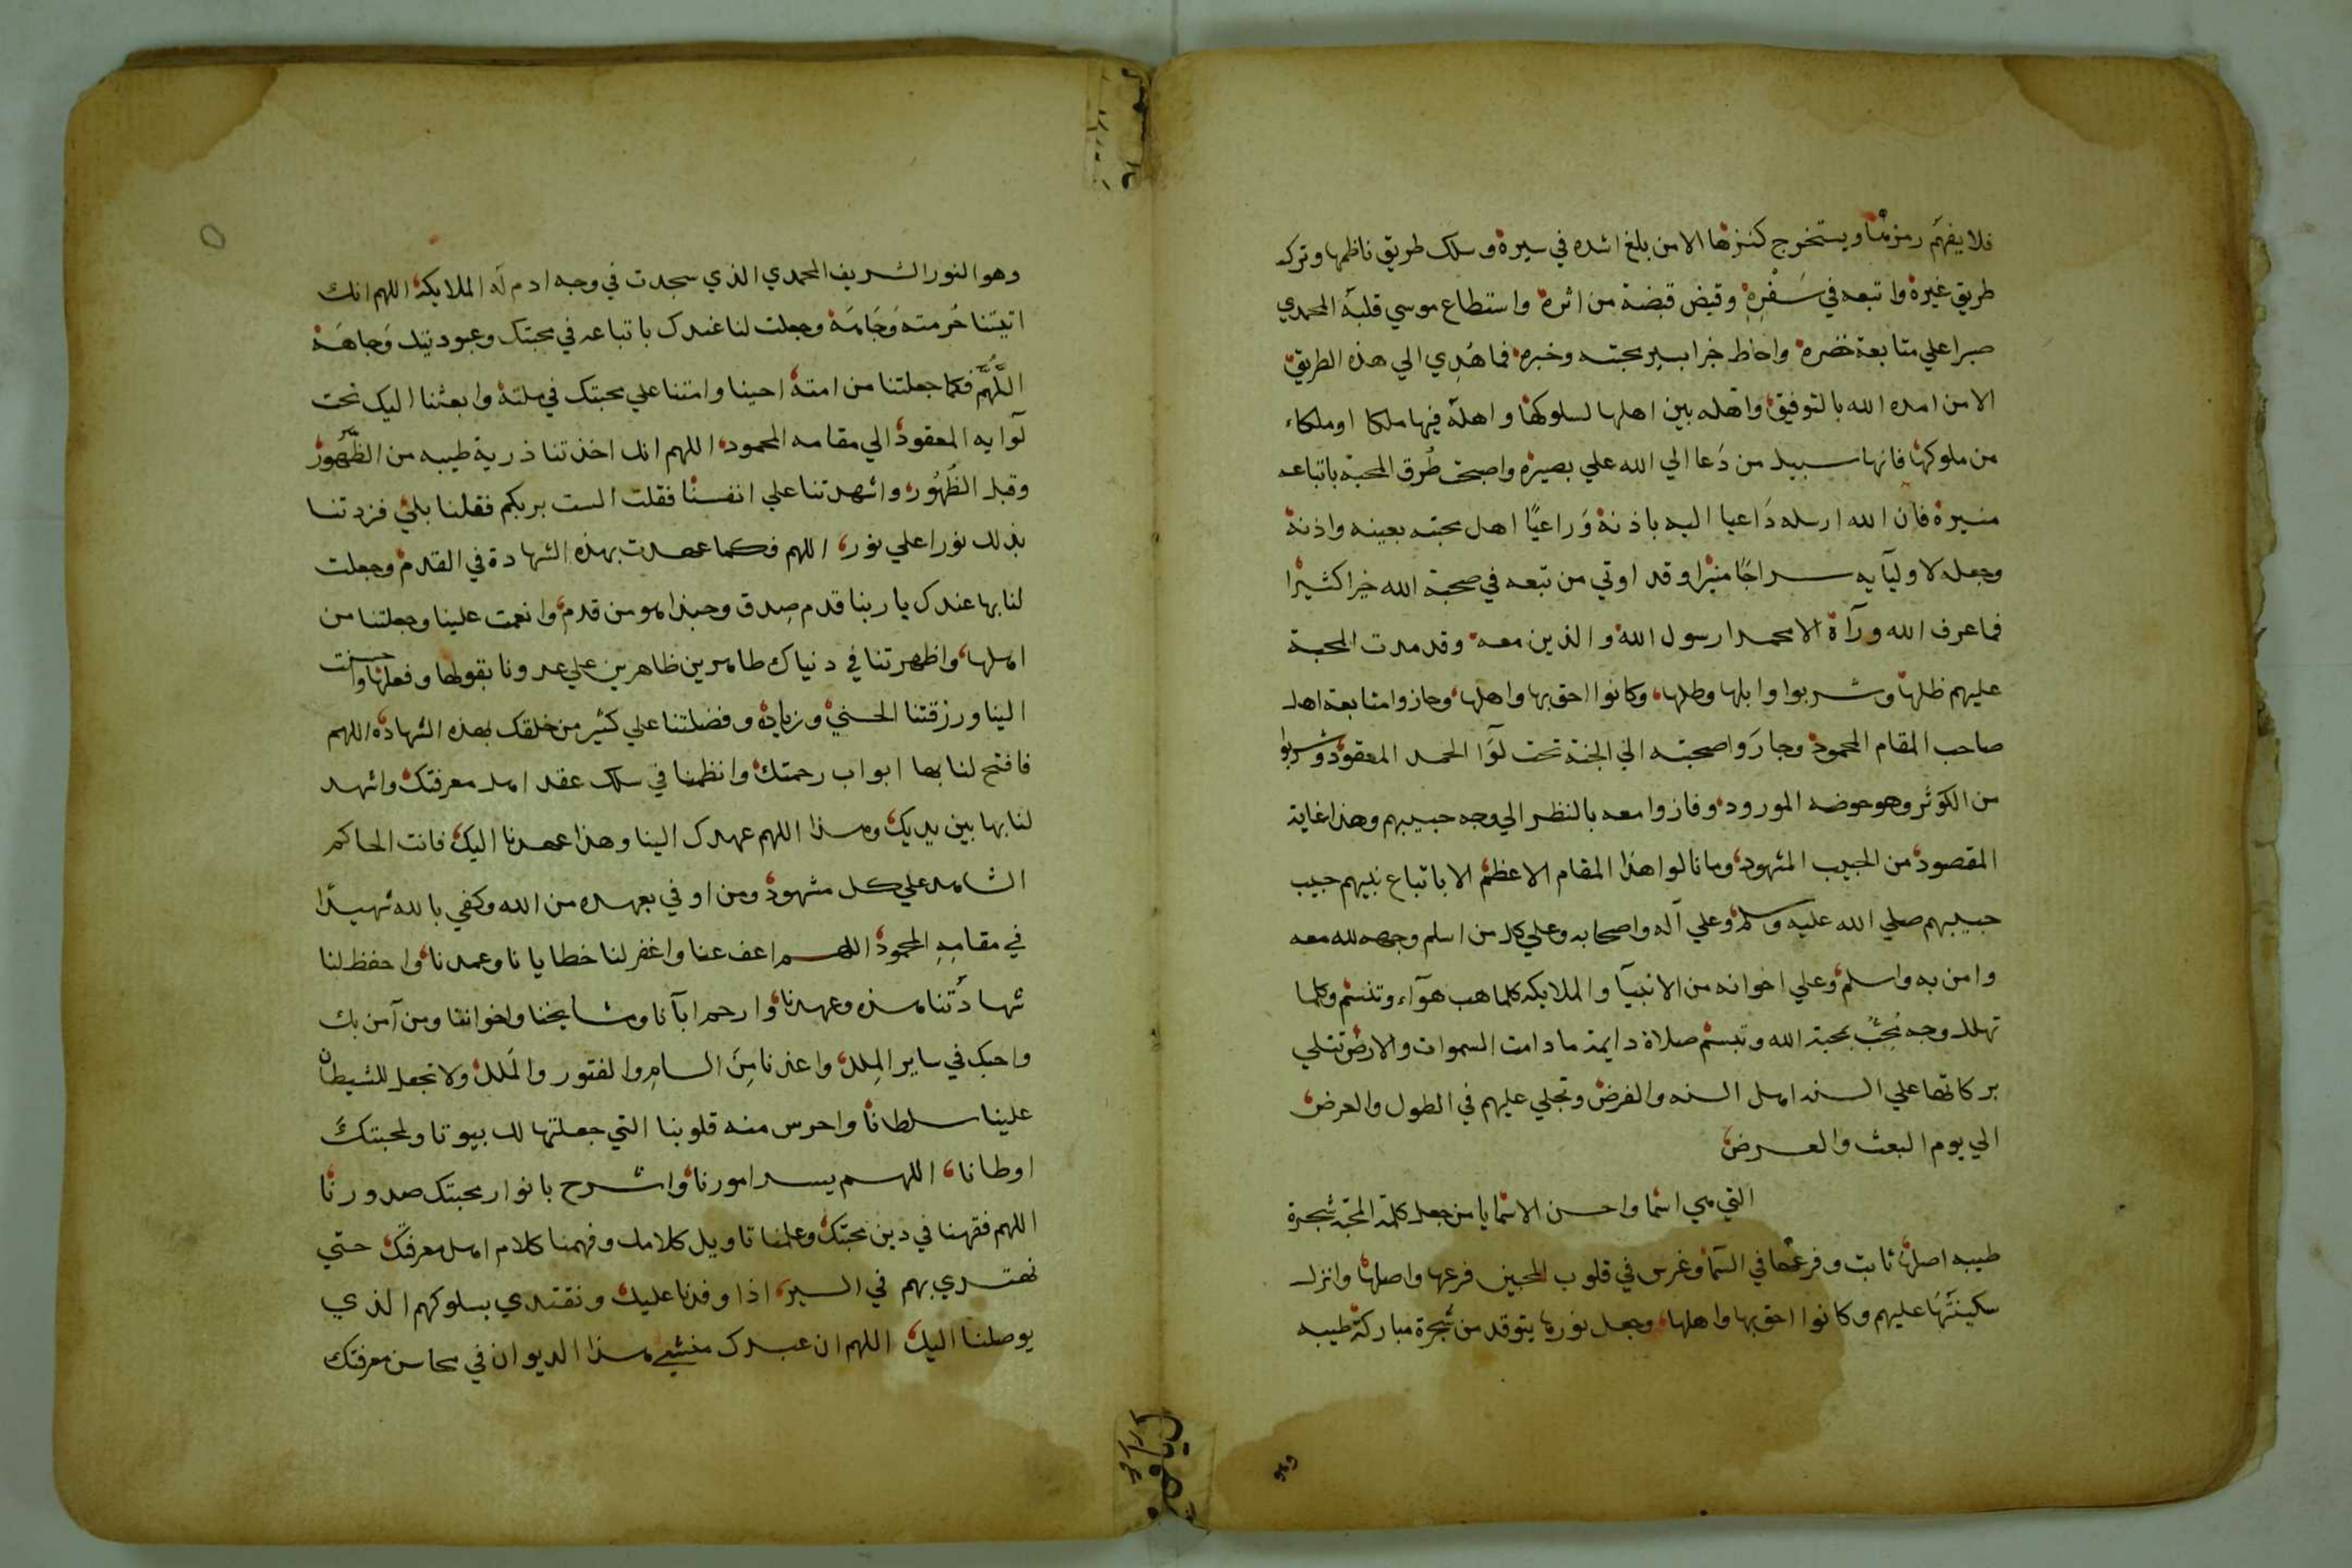 فلا يفهم رمزها ويستخرج كنزها الا من بلغ اشده في سيره وسلك طريق ناظمها وترك
طريق غيره واتبعه في سَفْرِهِ وقبض قبضة من اثره واستطاع موسي قلبه المحمدي
صبرا علي متابعة خضره واحاط خبرا بسير محبته وخبره فما هُدِي الي هذه الطريق
الا من امده الله بالتوفيق واهّله بين اهلها لسلوكها واهلّه فيها ملكا او ملكاء
من ملوكها فانها سبيل من دَعا الي الله علي بصيره واصبحت طُرق المحبة باتباعه
منيرة فان الله ارسله دَاعيا اليه باذنه وَراعيًا اهل محبته بعينه واذنه
وجعله لاوليآيه سراجًا منيرا وقد اوتي من تبعه في صحبة الله خيرا كثيرا
فما عرف الله ورآه الا محمدا رسول الله والذين معه وقد مدت المحبة
عليهم ظلها وشربوا وابلها وطلها، وكانوا احق بها واهلها، وحازوا متابعة اهل
صاحب المقام المحمود وجازَوا صحبته الي الجنة تحت لوَآ الحمد المعقود وشربوا
من الكوثر وهو حوضه المورود، وفازوا معه بالنظر الي وجه حبيبهم وهذا غاية
المقصود من الحبيب المشهود، وما نالوا هذا المقام الاعظم الا باتباع نبيهم حبيب
حبيبهم صلي الله عليه وسلم وعلي آله واصحابه وعلي كل من اسلم وجهه لله معه
وامن به واسلم، وعلي اخوانه من الانبيآ والملايكه كلما هب هوآء وتنسم وكلما
تهلل وجه مُحِبٍّ بمحبة الله وتبسم صلاة دايمة ما دامت السموات والارض تتلي
بركاتها علي السنه اهل السنه والفرض وتجلي عليهم في الطول والعرض
الي يوم البعث والعرض
التي هي اسما واحسن الاسما يا من جعل كلمة المحبة شجرة
طيبه اصلها ثابت وفرعها في السمآ وغرس في قلوب المحبين فرعها واصلها وانزل
سكينَتَها عليهم وكانوا احق بها واهلها، وجعل نورها يتوقد من شجرة مباركة طيبه
وهو
وهو النور الشريف المحمدي الذي سجدت في وجه ادم له الملايكة اللهم انك
اتيتنا حُرمته وَجَاهَهُ وجعلت لنا عندك باتباعه في محبتك وعبوديتك وَجاهَة
اللَّهُمَّ فكما جعلتنا من امته احينا وامتنا علي محبتك في ملته وابعثنا اليك تحت
لَوآيه المعقود الي مقامه المحمود اللهم انك اخذتنا ذرية طيبه من الظُّهُور
وقبل الظُهُور، واشهدتنا علي انفسنا فقلت الست بربكم فقلنا بلي فزدتنا
بذلك نورا علي نور، اللهم فكما عهدت بهذه الشهادة في القدم وجعلت
لنا بها عندك يا ربنا قدم صِدق وحبذا هو من قدم، وانعمت علينا وجعلتنا من
اهلها، واظهرتنا في دنياك طاهرين ظاهرين علي عدونا بقولها وفعلها واحسنت
الينا ورزقتنا الحسني وزياده وفضلتنا علي كثير من خلقك بهذه الشهاده اللهم
فافتح لنا بها ابواب رحمتك وانظمنا في سلك عقد اهل معرفتك واشهد
لنا بها بين يديك، وهذا اللهم عهدك الينا وهذا عهدنا اليك فانت الحاكم
الشاهد علي كل مشهود، ومن اوفي بعهده من الله وكفي بالله شهيدًا
في مقامِهِ المحمود اللهم اعف عنا واغفر لنا خطايانا وعمدنا، واحفظ لنا
شهادتُنا هذه وعهدنا، وارحم ابآنا ومشايخنا واخواننا ومن آمن بك
واحبك في ساير المِلل، واعذنا مِنَ السامِ والفتور والمَلل ولا تجعل للشيطان
علينا سلطانا واحرس منه قلوبنا التي جعلتها لك بيوتا ولمحبتك
اوطانا، اللهم يسر امورنا واشرح بانوار محبتك صدورنا
اللهم فقهنا في دين محبتك وعلمنا تاويل كلامك وفهمنا كلام اهل معرفتك حتي
نهتدي بهم في السير، اذا وفدنا عليك ونقتدي بسلوكهم الذي
يوصلنا اليك اللهم ان عبدك منشي هذا الديوان في محاسن معرفتك